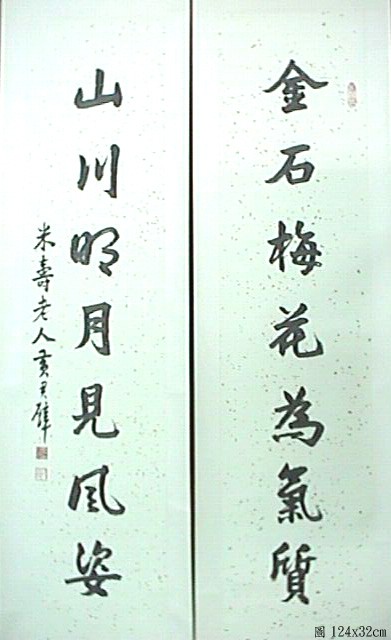 金石梅花為氣質
山川明月見風姿
米壽老人黃君璧
圖 124x32cm